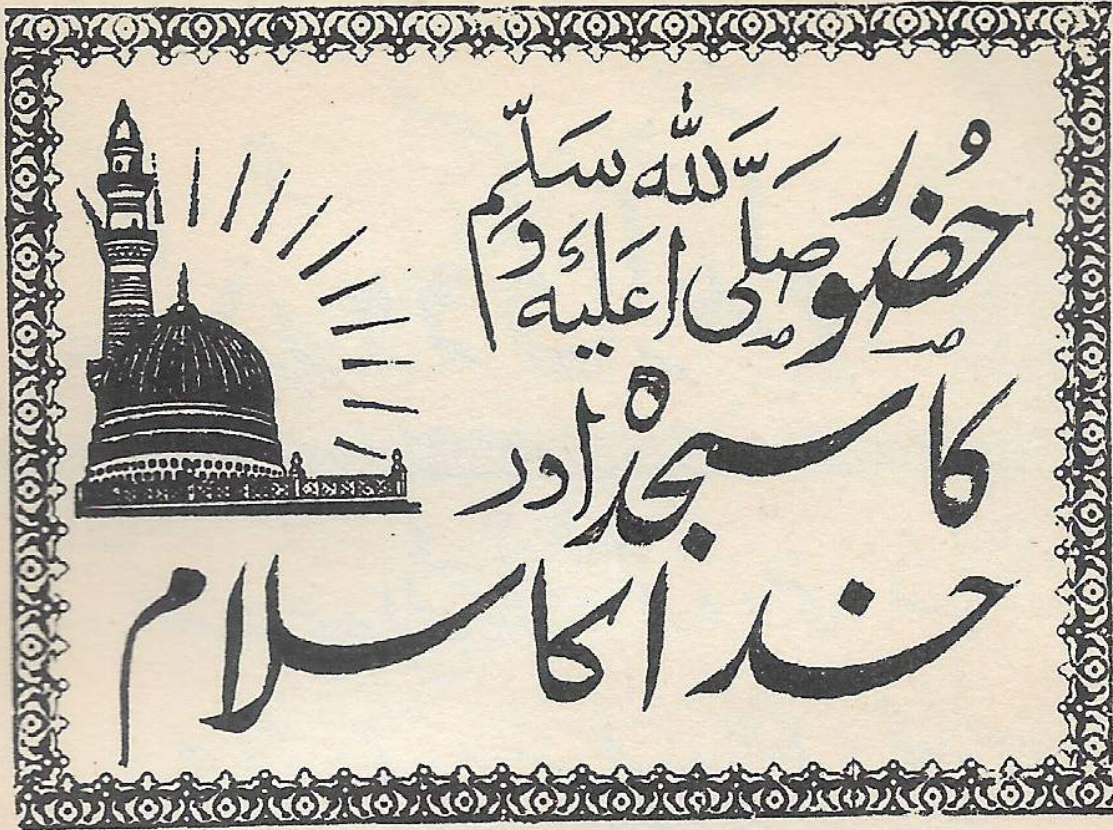 حضُور صلّی اللہ علیہ وسلّم
کا سجدہ اور
خدا کا سلام